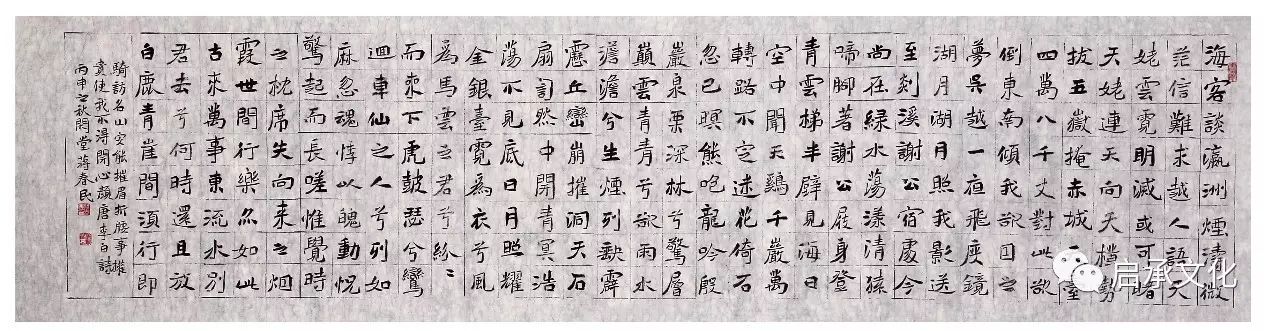 海客談瀛洲煙清微
茫信難求越人語天
姥雲霓明滅或可睹
天姥連天向天橫勢
拔五嶽掩赤城天臺
四萬八千丈對此欲
倒東南傾我欲因之
夢吳越一夜飛度鏡
湖月湖月照我影送
至剡溪謝公宿處今
尚在綠水蕩漾清猿
啼腳著謝公屐身登
青雲梯半壁見海日
空中聞天鷄千巖萬
轉路不定迷花倚石
忽已暝熊咆龍吟殷
巖泉栗深林兮驚層
巔雲青青兮欲雨水
澹澹兮生煙列缺霹
靂丘巒崩摧洞天石
扇訇然中開青冥浩
蕩不見底日月照耀
金銀臺霓爲衣兮風
爲馬雲之君兮紛〻
而來下虎鼓瑟兮鸞
迴車仙之人兮列如
麻忽魂悸以魄動怳
驚起而長嗟惟覺時
之枕席失向来之烟
霞世間行樂亦如此
古來萬事東流水別
君去兮何時還且放
白鹿青崖間須行即
騎訪名山安能摧眉折腰事權
貴使我不得開心顏唐李白詩
丙申之秋閒堂蔣春民
启承文化